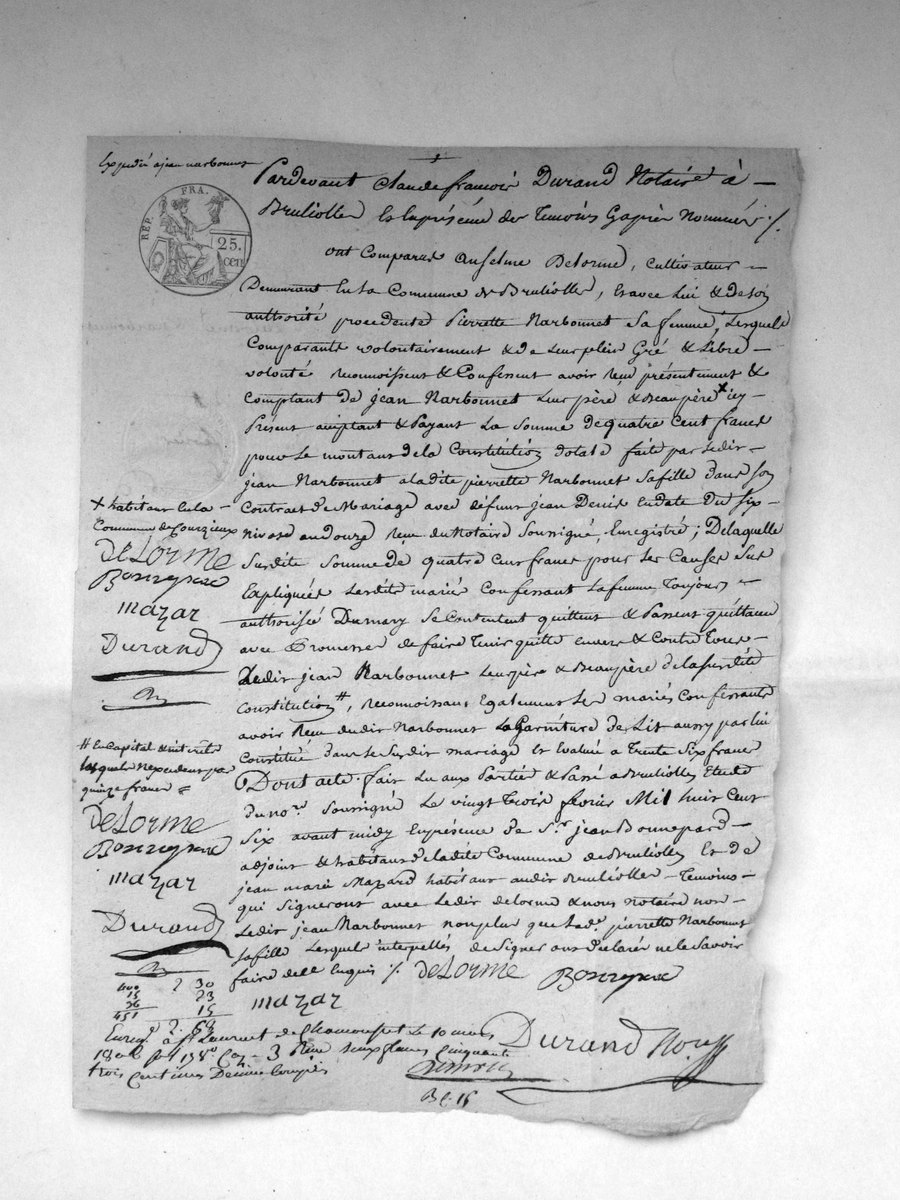 Expédié a jean narbonnet
REP. FRA.
25.
cen
Pardevant Claude françois Durand Notaire à
Brullioles En la présence des Temoins Cy après Nommés ·/.
ont Comparus Anselme Delorme, Cultivateur
Demeurant En la Commune de Brullioles, Et avec Lui & de Son
authorité procedente Pierrette Narbonnet Sa femme, Lesquels
Comparants volontairement & de Leur plein Gré & Libre
volonté reconnoissent & Confessent avoir reçu présentement &
Comptant De jean Narbonnet Leur père & Beaupère × icy
Présent acceptant & Payant La Somme de quatre Cent francs
pour Le montant de la Constitution dotale faite par Ledit
jean Narbonnet a la dite pierrette Narbonnet Sa fille dans Son
Contrat de Mariage avec défunt jean Denis En date Du Six
nivose an douze reçu du Notaire Soussigné, Enregistré ; De laquelle
Surdite Somme de quatre Cent francs pour Les Causes Sus
Expliquées Lesdits mariés Confessants La femme Toujours
authorisée Du mary Se Contentent quittent & Passent quittance
avec Promesse de faire Tenir quitte Envers & Contre Tous
Ledit jean Narbonnet Leur père & Beaupère de la Surdite
Constitution #, reconnoissant Egalement Les mariés Confessants
avoir Reçu dudit Narbonnet La Garniture de Lit aussy par lui
Constitué dans Le Surdit mariage Et Evalué a Trente Six francs
Dont acte fait Lu aux Parties & Passé a Brullioles Etude
du no.re Soussigné Le vingt Trois février Mil huit Cent
Six avant midy En présence de S.r jean Bonnepard
adjoint & habitant de la dite Commune de Brullioles Et de
jean marie Mazard habitant audit Brullioles Temoins
qui Signeront avec Ledit delorme & nous notaire non
Ledit jean Narbonnet non plus que Lad.e pierrette Narbonnet
Sa fille Lesquels interpellés de Signer ont déclaré ne le Savoir
faire de ce Enquis ·/.
deLorme
mazar
Durand
× habitant En la
Commune de Courzieux
deLorme
mazar
Durand
# En Capital & intérêts
Lesquels
quinze francs
deLorme
mazar
Durand
400
15
36
451
2 30
23
15
2. 68
Enreg.é à S.t Laurent de Chamousset Le 10 mars
1806 Reçu deux francs Cinquante
trois Centimes Décime Compris